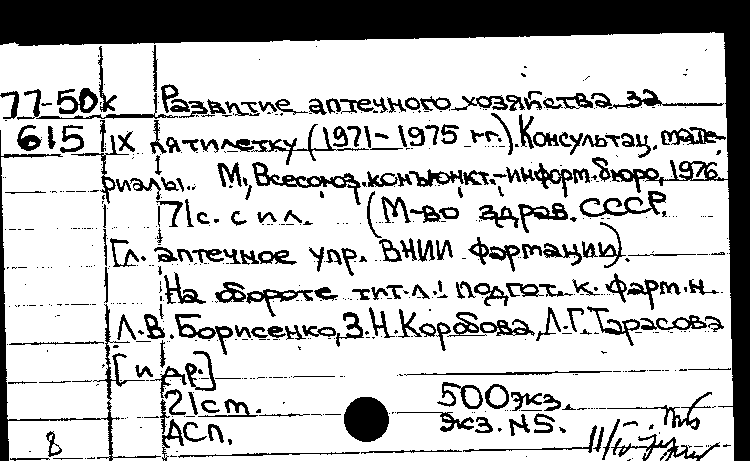 77-50к Развитие аптечного хозяйства за
615 IX пятилетку (1971-1975 гг.). Консультац. мате-
риалы. М., Всесоюз. конъюнкт.-информ. бюро, 1976.
71с. с ил. (М-во здрав. СССР.
Гл. аптечное упр. ВНИИ фармации).
На обороте тит. л.: подгот. к. фарм. н.
Л.В. Борисенко, З.Н. Коробова, Л.Г. Тарасова
[и др.]
21см. 500 экз.
АСП. экз. NS.
8 11/IV-